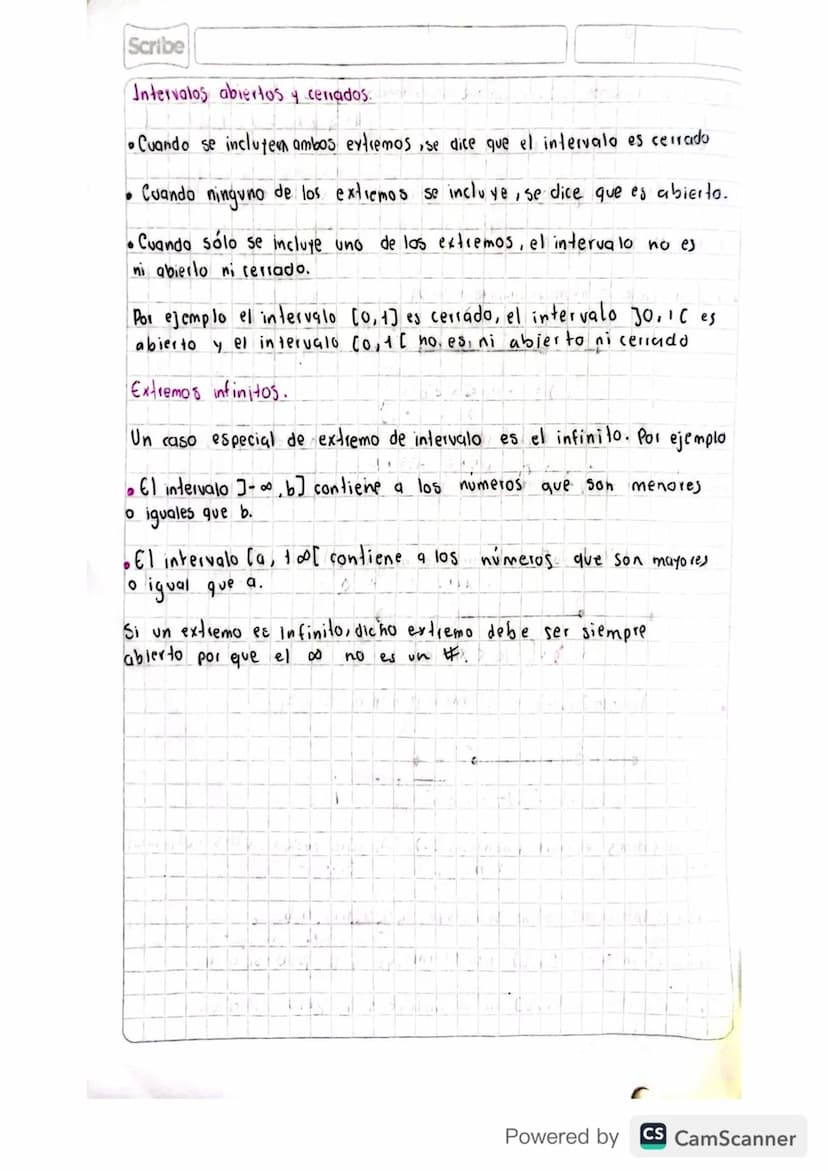 Scribe
Intervalos abiertos y cerrados.
• Cuando se incluyen ambos extremos, se dice que el intervalo es cerrado
• Cuando ninguno de los extremos se incluye, se dice que es abierto.
• Cuando sólo se incluye uno de los extremos, el intervalo no es
ni abierto ni cerrado.
Por ejemplo el intervalo [0,1] es cerrado, el intervalo ]0,1[ es
abierto y el intervalo [0,1[ no es ni abierto ni cerrado
Extremos infinitos.
Un caso especial de extremo de intervalo es el infinito. Por ejemplo
• El intervalo ]-∞,b] contiene a los números que son menores
o iguales que b.
• El intervalo [a, +∞[ contiene a los números que son mayores
o igual que a.
Si un extremo es Infinito, dicho extremo debe ser siempre
abierto por que el ∞ no es un #.
Powered by CS CamScanner